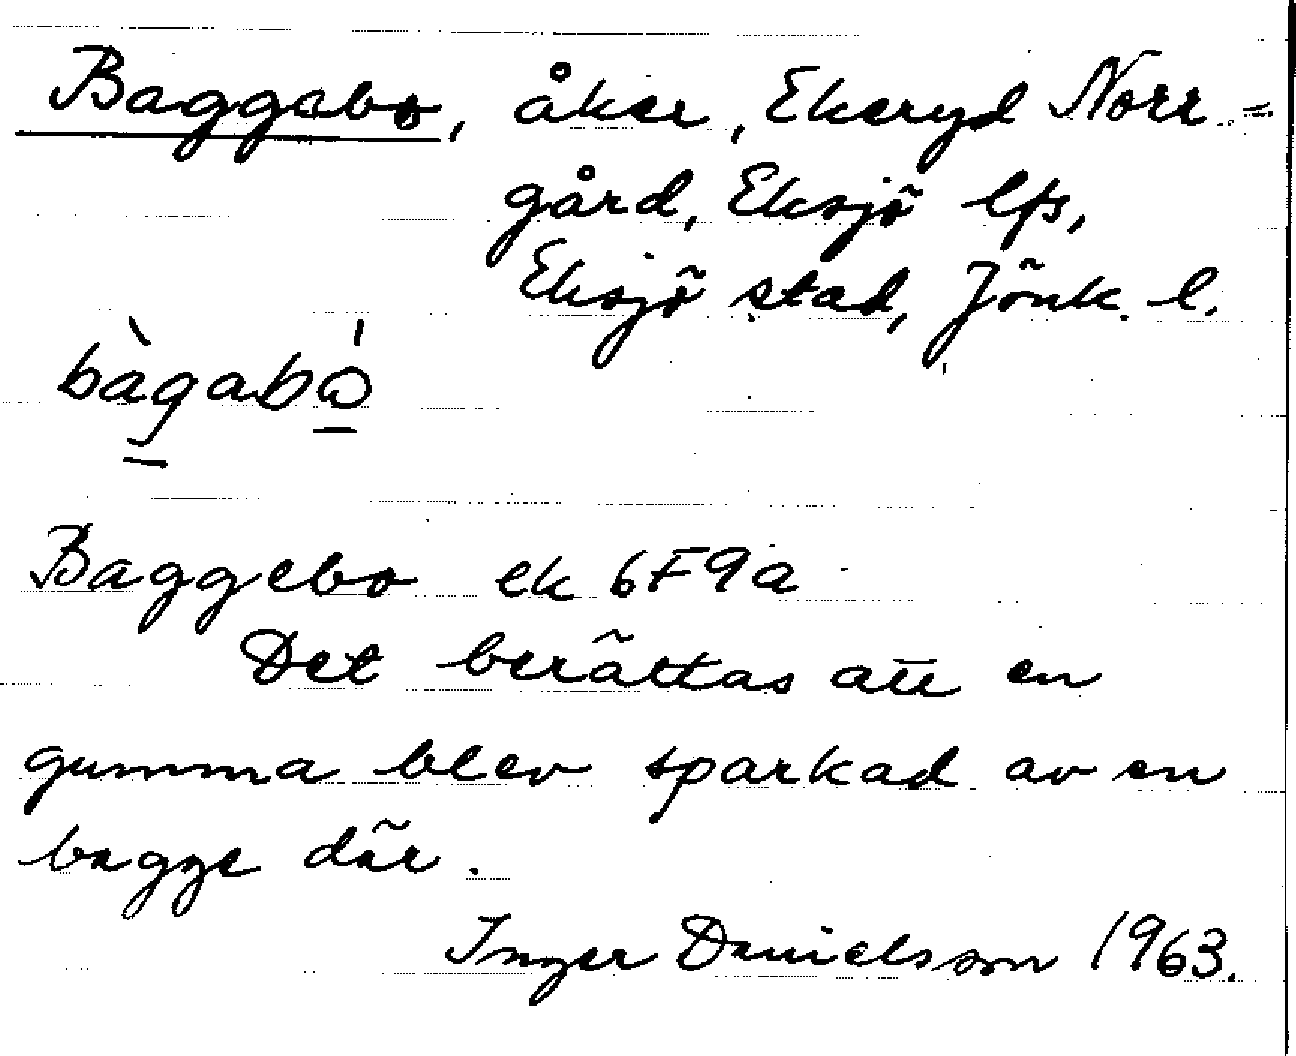 Baggebo, åker, Ekeryd Norr=
gård, Eksjö lfs,
Eksjö stad, Jönk. l.
bàgabò
Baggebo ek 6F9a
Det berättas att en
gumma blev sparkad av en
bagge där.
Inger Danielsson 1963.